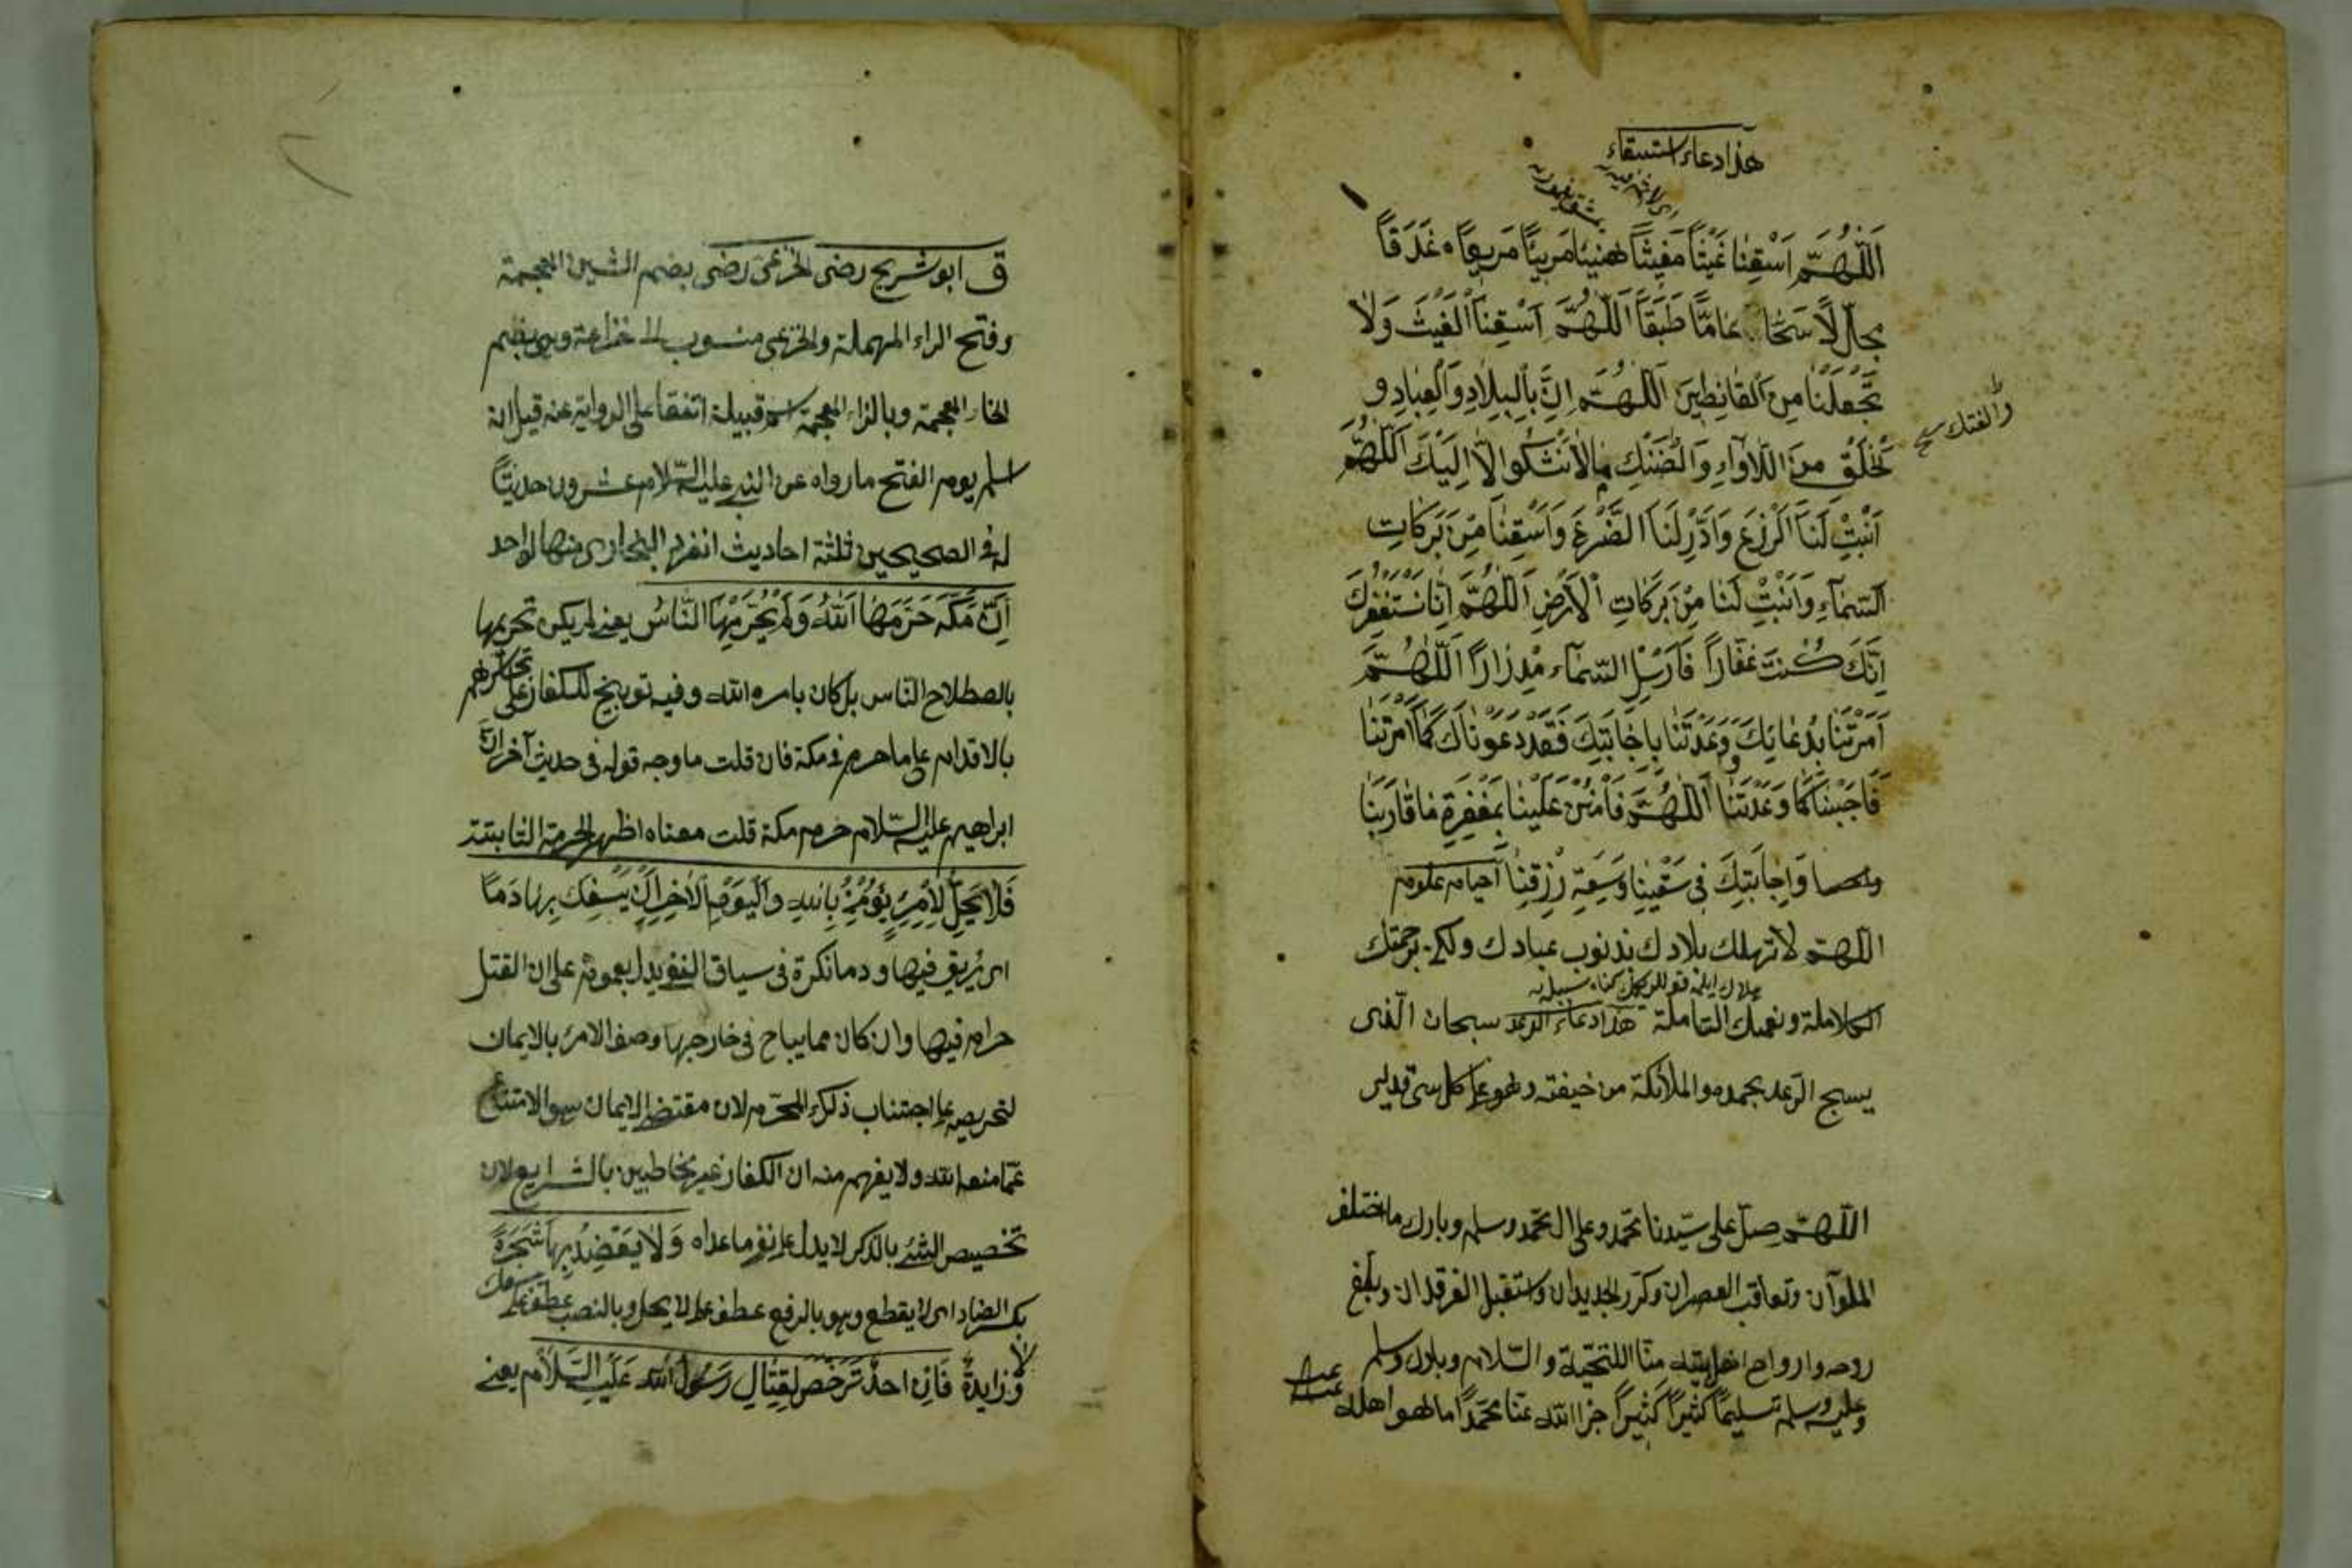 هذا دعاء استسقاء
اَللّٰهُمَّ اَسْقِنَا غَيْثًا مُغِيثًا هَنِيئًا مَرِيئًا مَرِيعًا غَدَقًا
مجاللًا سَحًّا عَامًّا طَبَقًا اَللّٰهُمَّ اَسْقِنَا الْغَيْثَ وَلَا
تَجْعَلْنَا مِنَ الْقَانِطِينَ اَللّٰهُمَّ اِنَّ بِالْبِلَادِ وَالْعِبَادِ و
الْخَلْقِ مِنَ اللَّأْوَاءِ وَالضَّنْكِ مَالَا نَشْكُوا اِلَّا اِلَيْكَ اَللّٰهُمَّ
والفتك
اَنْبِتْ لَنَا الزَّرْعَ وَاَدِرَّ لَنَا الضَّرْعَ وَاَسْقِنَا مِنْ بَرَكَاتِ
السَّمَاءِ وَاَنْبِتْ لَنَا مِنْ بَرَكَاتِ الْاَرْضِ اَللّٰهُمَّ اِنَّا نَسْتَغْفِرُكَ
اِنَّكَ كُنْتَ غَفَّارًا فَاَرْسِلِ السَّمَاءَ مِدْرَارًا اَللّٰهُمَّ
اَمَرْتَنَا بِدُعَائِكَ وَوَعَدْتَنَا بِاِجَابَتِكَ فَقَدْ دَعَوْنَاكَ كَمَا اَمَرْتَنَا
فَاَجِبْنَا كَمَا وَعَدْتَنَا اَللّٰهُمَّ فَامْنُنْ عَلَيْنَا بِمَغْفِرَةِ مَا قَارَبْنَا
وَاِجَابَتِكَ فِي سَقْيِنَا وَسَعَةِ رِزْقِنَا
اللّٰهمّ لا تهلك بلادك بذنوب عبادك ولكن برحمتك
الكاملة ونعمتك الشاملة هذا دعاء الرعد سبحان الّذى
يسبح الرّعد بحمده والملائكة من خيفته وهو على كل شئ قدير
اللّٰهمّ صلّ على سيّدنا محمّد وعلى ال محمّد وسلم وبارك ما اختلف
الملوان وتعاقب العصران وكرّر الجديدان واستقبل الفرقدان وبلّغ
روحه وارواح اهل بيته منّا التّحيّة والسّلام وبارك وسلم
وعليه وسلم تسليمًا كثيرًا كثيرًا جزا الله عنّا محمّدًا ما هو اهله
ق ابو شريح رضى الخزعى رضى بضم الشين المعجمة
وفتح الراء المهملة والخزعى منسوب الى خزاعة وهى بضم
الخاء المعجمة وبالزاء المعجمة اسم قبيلة اتفقا على الرواية عنه قيل انه
اسلم يوم الفتح ما رواه عن النبى عليه السّلام عشرون حديثًا
له فى الصحيحين ثلثة احاديث انفرد البخارى منها بواحد
اِنَّ مَكَّةَ حَرَّمَهَا اللّٰهُ وَلَمْ يُحَرِّمْهَا النَّاسُ يعنى لم يكن تحريمها
باصطلاح الناس بل كان بامره الله وفيه توبيخ للكفار على تجاسرهم
بالاقدام على ما حرم فى مكة فان قلت ما وجه قوله فى حديث آخر انّ
ابراهيم عليه السّلام حرم مكة قلت معناه اظهر الحرمة الثابتة
فَلَا يَحِلُّ لِاِمْرِئٍ يُؤْمِنُ بِاللّٰهِ وَالْيَوْمِ الْاٰخِرِ اَنْ يَسْفِكَ بِهَا دَمًا
اى يُريق فيها ودما نكرة فى سياق النفى يدل بعمومه على ان القتل
حرام فيها وان كان مما يباح فى خارجها وصف الامرئ بالايمان
لتحريصه على اجتناب ذلك المحرّم لان مقتضى الايمان هو الامتناع
عمّا منعه الله ولا يفهم منه ان الكفار غير مخاطبين بالشرايع لان
تخصيص الشئ بالذكر لا يدل على نفى ما عداه وَلَا يَعْضِدُ بِهَا شَجَرَةً
بكسر الضاد اى لا يقطع وهو بالرفع عطف على لا يحل وبالنصب عطف على يسفك
ولا زايدة فَاِنْ اَحَدٌ تَرَخَّصَ لِقِتَالِ رَسُولِ اللّٰهِ عَلَيْهِ السَّلَام يعنى